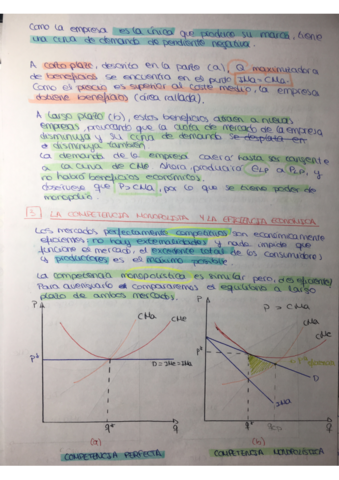 Como la empresa es la única que produce su marca, tiene
una curva de demanda de pendiente negativa.
A corto plazo, descrito en la parte (a), Q maximizadora
de beneficios se encuentra en el punto IMa = CMa.
Como el precio es superior al coste medio, la empresa
obtiene beneficios (área rallada).
A largo plazo (b), estos beneficios atraen a nuevas
empresas, provocando que la cuota de mercado de la empresa
disminuya y su curva de demanda se desplata en
o disminuya también
La demanda de la empresa caerá hasta ser tangente
a la curva de CMe. Ahora, producirá QLP a PLP, y
no habrá beneficios económicos,
obsérvese que P>CMa, por lo que se tiene poder de
monopolio.
3. LA COMPETENCIA MONOPOLÍSTICA Y LA EFICIENCIA ECONÓMICA
Los mercados perfectamente competitivos son económicamente
eficientes: no hay externalidades y nada impide que
funcione el mercado, el excedente total de los consumidores
y productores es el máximo posible.
La competencia monopolística es similar pero, ¿es eficiente?
Para averiguarlo compararemos el equilibrio a largo
plazo de ambos mercados.
P
CMa
CMe
P*
D = IMe = IMa
q*
q
(a)
COMPETENCIA PERFECTA
P > CMa
P
CMa
CMe
P*
D
IMa
q*
q
(b)
COMPETENCIA MONOPOLÍSTICA